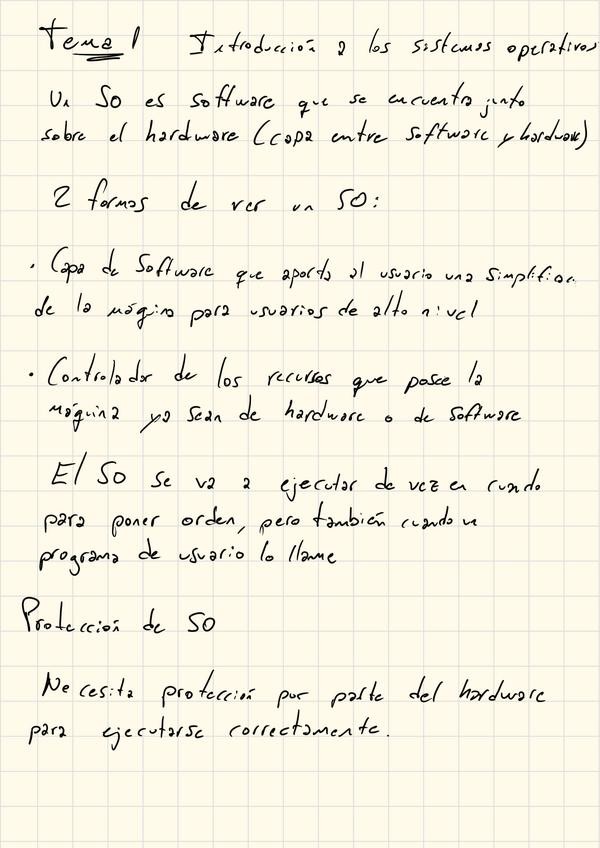 Tema 1 Introducción a los sistemas operativos
Un SO es software que se encuentra junto
sobre el hardware (capa entre software y hardware)
2 formas de ver un SO:
· Capa de Software que aporta al usuario una simplificac
de la máquina para usuarios de alto nivel
· Controlador de los recursos que posee la
máquina ya sean de hardware o de software
El SO se va a ejecutar de vez en cuando
para poner orden, pero también cuando un
programa de usuario lo llame
Protección de SO
Necesita protección por parte del hardware
para ejecutarse correctamente.